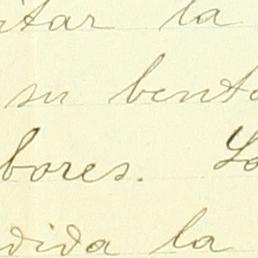 itar la
su bent
bores. Lo
dida la